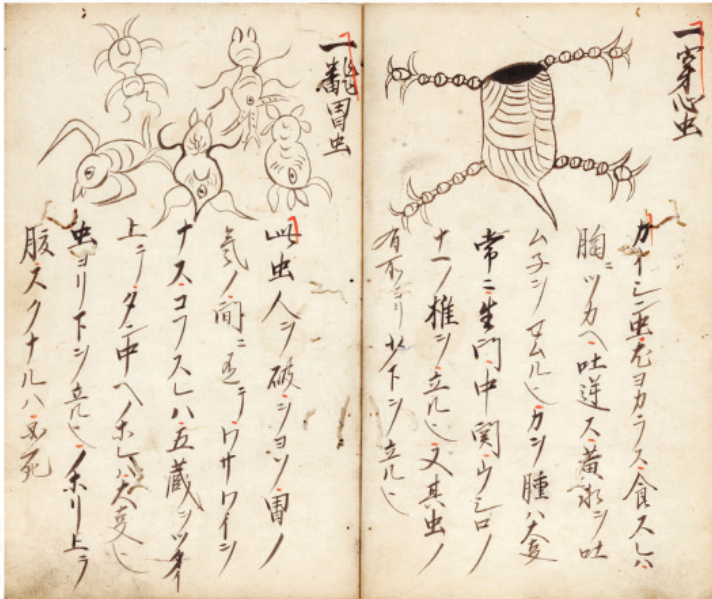 一穿心虫
カイシン虫尤ヨカラス食スレハ
胸ニツカヘ吐逆ス黄水ヲ吐
ムネヲヤムル也カン腫ハ大変
常ニ生門中関ウシロノ
十一ノ椎ヲ立ル也又其虫ノ
有所ヨリ下ヲ立ル也
一飜胃虫
此虫人ヲ破ショツ胃ノ
気ノ間ニテワサワイヲ
ナスコフスレハ五蔵ヲツタイ
上テタン中ヘノホレハ大変也
虫ヨリ下ヲ立ル也ノホリ上テ
脉スクナルハ必死